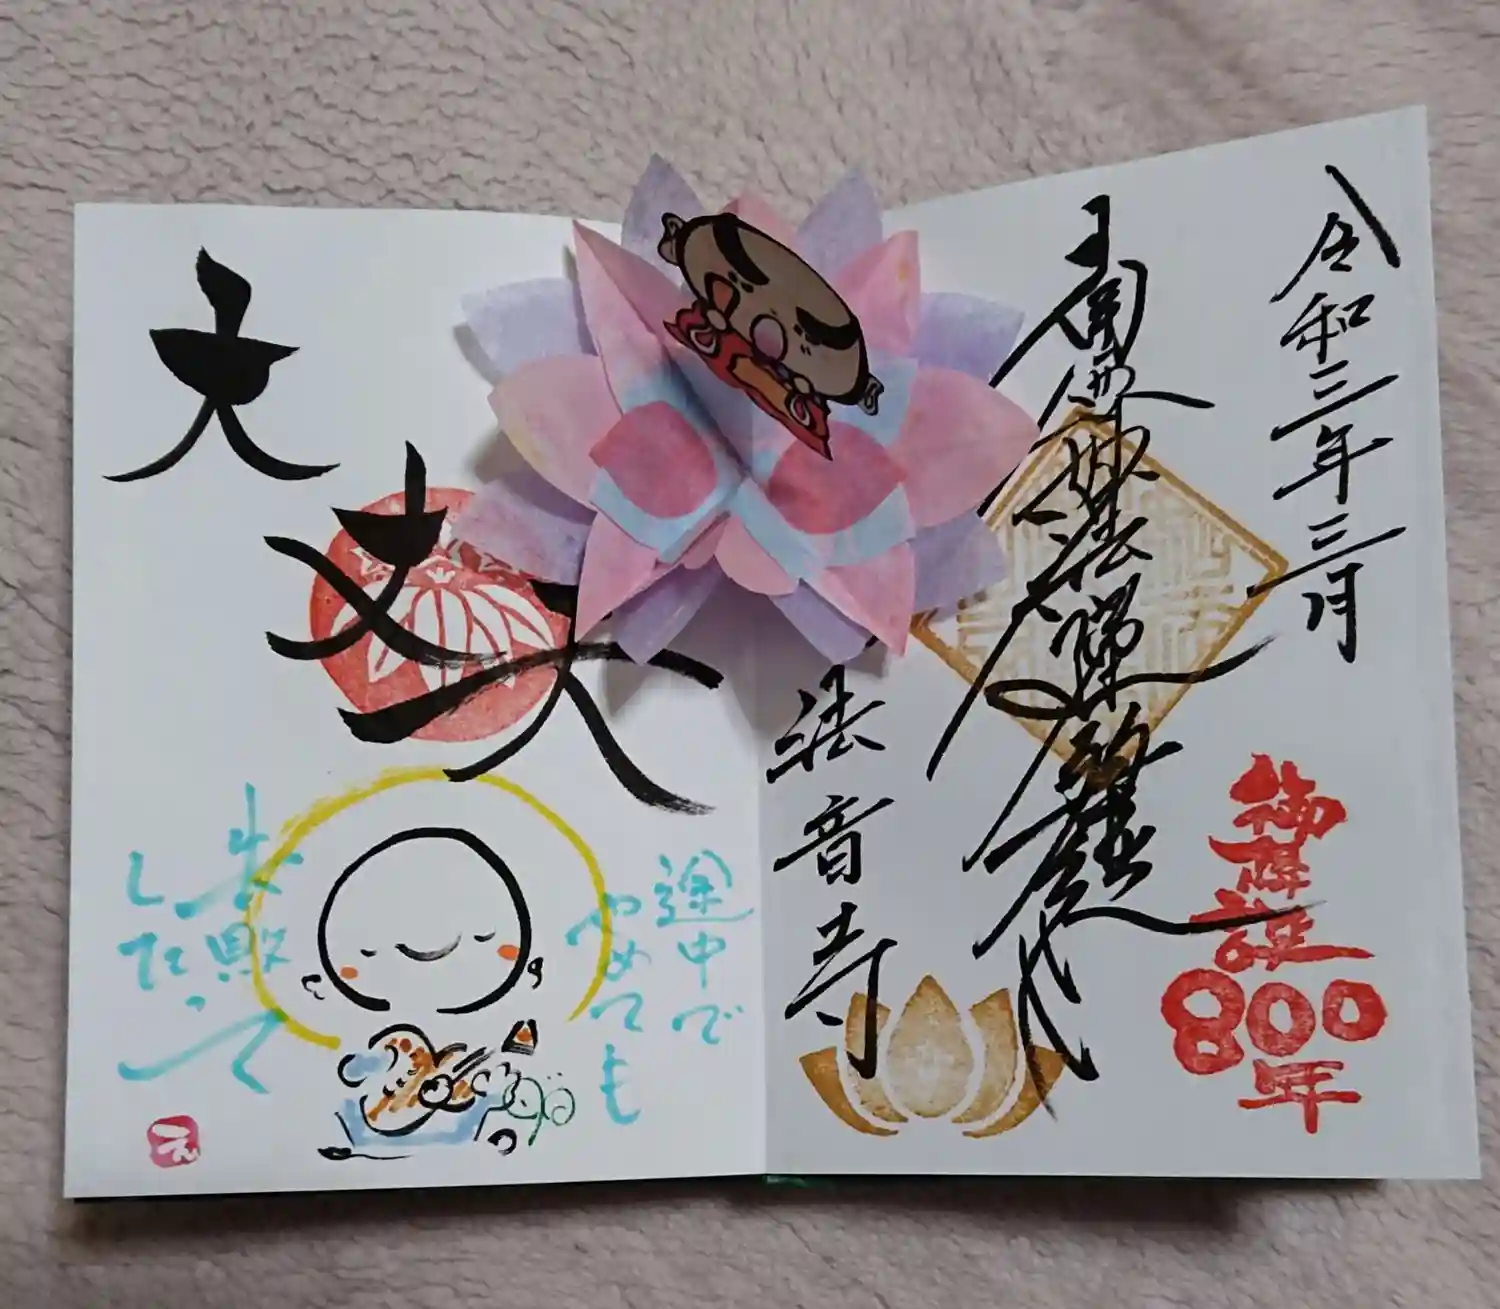 令和三年三月
南無妙法蓮華経
法音寺
御降誕
800
年
大丈夫
途中で
やめても
失敗
したって
え